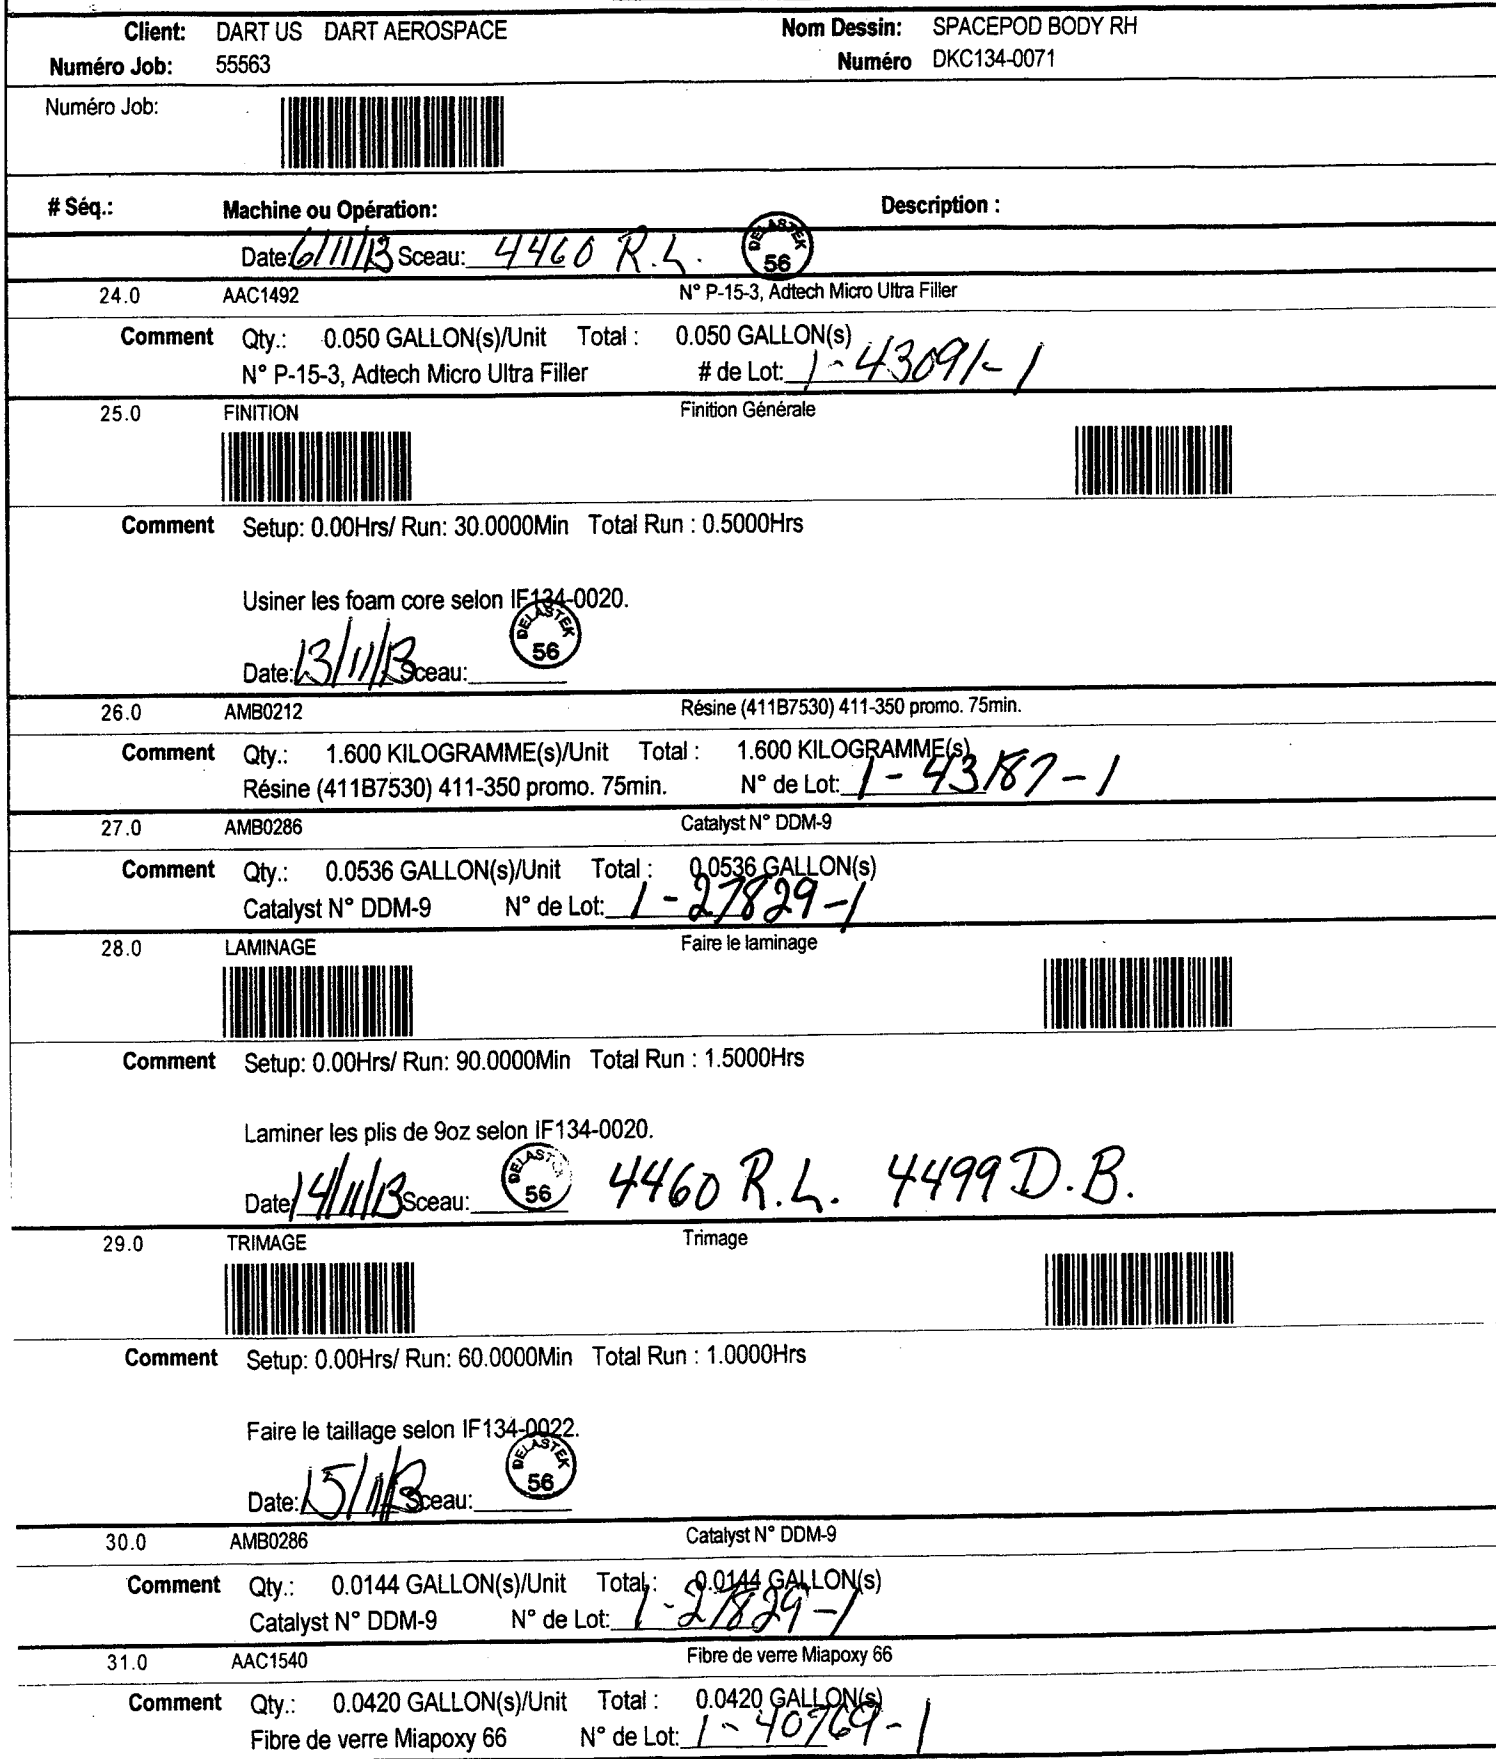 Client: DART US DART AEROSPACE Nom Dessin: SPACEPOD BODY RH
Numéro Job: 55563 Numéro DKC134-0071
Numéro Job:
# Séq.: Machine ou Opération: Description :
Date: 6/11/13 Sceau: 4460 R.L. DELASTEK 56
24.0 AAC1492 N° P-15-3, Adtech Micro Ultra Filler
Comment Qty.: 0.050 GALLON(s)/Unit Total : 0.050 GALLON(s)
N° P-15-3, Adtech Micro Ultra Filler # de Lot: 1-43091-1
25.0 FINITION Finition Générale
Comment Setup: 0.00Hrs/ Run: 30.0000Min Total Run : 0.5000Hrs
Usiner les foam core selon IF134-0020.
DELASTEK 56
Date: 13/11/13 Sceau:
26.0 AMB0212 Résine (411B7530) 411-350 promo. 75min.
Comment Qty.: 1.600 KILOGRAMME(s)/Unit Total : 1.600 KILOGRAMME(s)
Résine (411B7530) 411-350 promo. 75min. N° de Lot: 1-43187-1
27.0 AMB0286 Catalyst N° DDM-9
Comment Qty.: 0.0536 GALLON(s)/Unit Total : 0.0536 GALLON(s)
Catalyst N° DDM-9 N° de Lot: 1-27829-1
28.0 LAMINAGE Faire le laminage
Comment Setup: 0.00Hrs/ Run: 90.0000Min Total Run : 1.5000Hrs
Laminer les plis de 9oz selon IF134-0020.
Date: 14/11/13 Sceau: DELASTEK 56 4460 R.L. 4499 D.B.
29.0 TRIMAGE Trimage
Comment Setup: 0.00Hrs/ Run: 60.0000Min Total Run : 1.0000Hrs
Faire le taillage selon IF134-0022.
DELASTEK 56
Date: 15/11/13 Sceau:
30.0 AMB0286 Catalyst N° DDM-9
Comment Qty.: 0.0144 GALLON(s)/Unit Total : 0.0144 GALLON(s)
Catalyst N° DDM-9 N° de Lot: 1-27829-1
31.0 AAC1540 Fibre de verre Miapoxy 66
Comment Qty.: 0.0420 GALLON(s)/Unit Total : 0.0420 GALLON(s)
Fibre de verre Miapoxy 66 N° de Lot: 1-40769-1